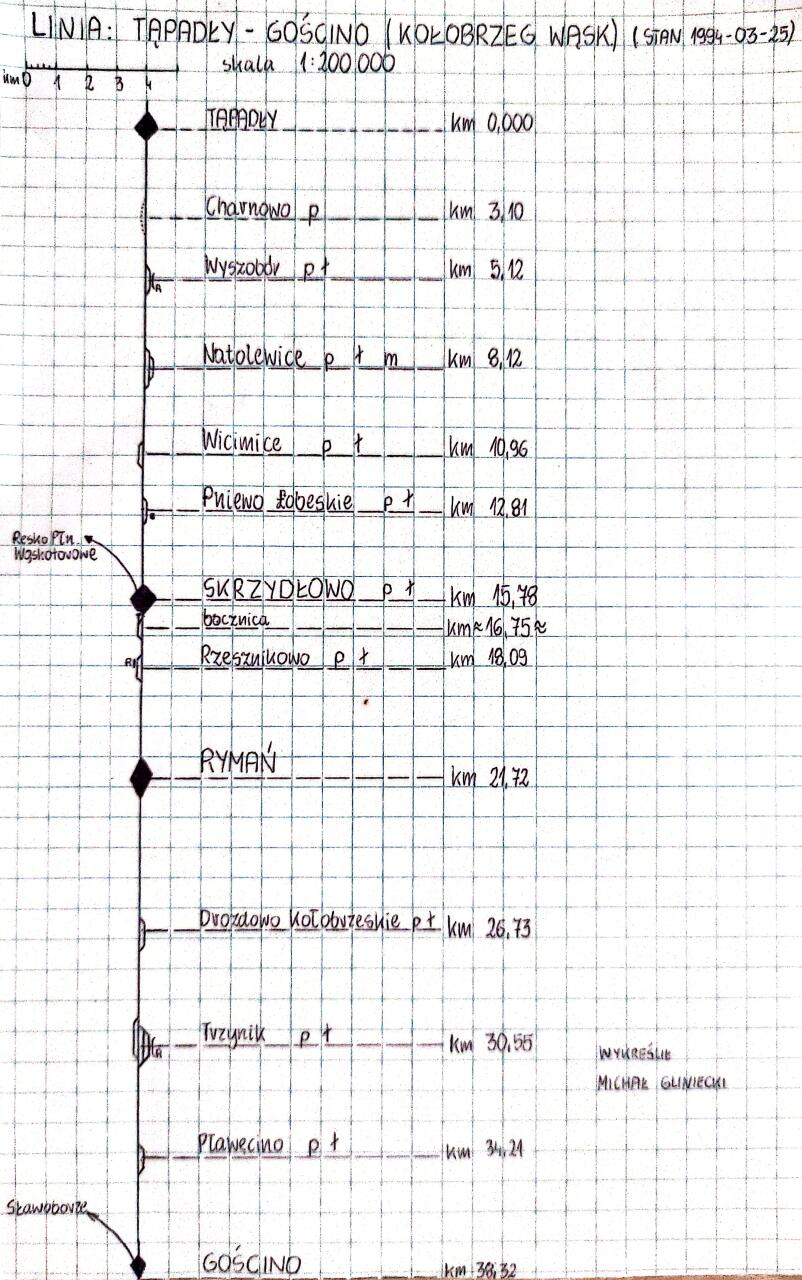 LINIA: TĄPADŁY - GOŚCINO (KOŁOBRZEG WĄSK) (STAN 1994-03-25)
skala 1:200 000
km 0 1 2 3 4
TĄPADŁY km 0,000
Charnowo p km 3,10
Wyszobór p ł km 5,12
R
Natolewice p ł m km 8,12
Wicimice p ł km 10,96
Pniewo Łobeskie p ł km 12,81
Resko Płn.
Wąskotorowe
SKRZYDŁOWO p ł km 15,78
bocznica km ≈ 16,75 ≈
R Rzesznikowo p ł km 18,09
RYMAŃ km 21,72
Drozdowo Kołobrzeskie p ł km 26,73
Trzynik p ł km 30,55
R
WYKREŚLIŁ
MICHAŁ GLINIECKI
Pławęcino p ł km 34,21
Sławoborze
GOŚCINO km 38,32